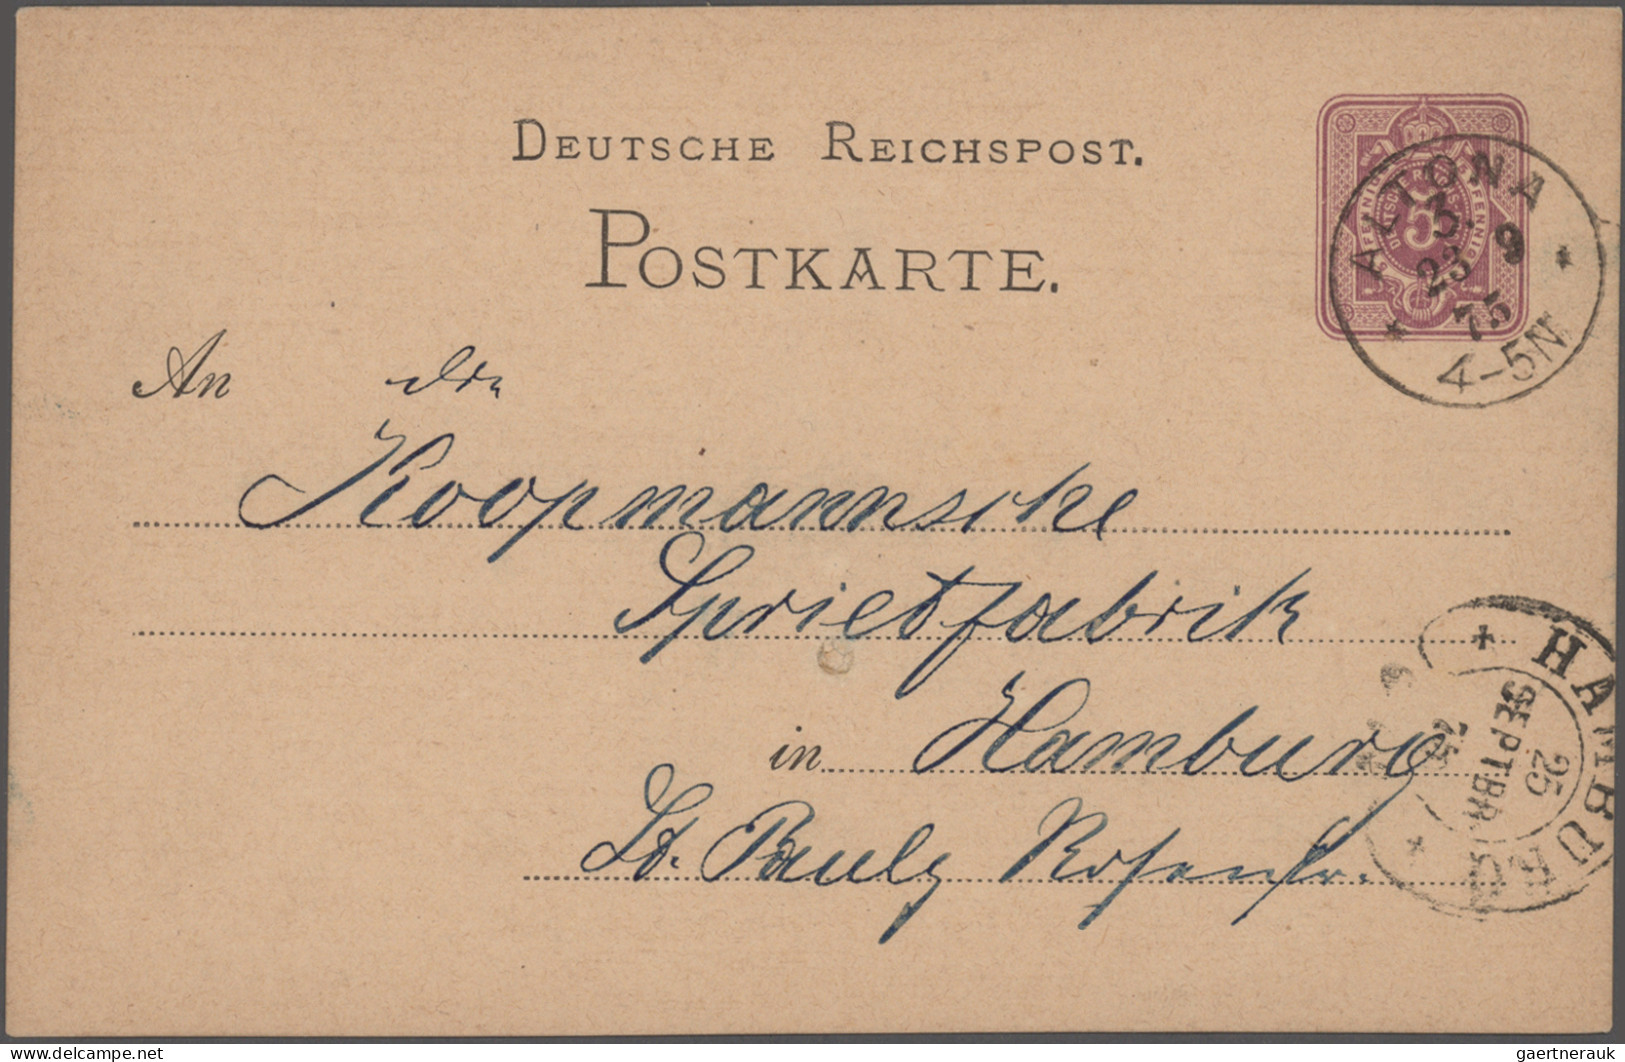 DEUTSCHE REICHSPOST.
POSTKARTE.
5
ALTONA
3.
23 9
75
4-5N
An die
Koopmannsche
Sprietfabrik
in Hamburg
St. Pauly Rosenstr.
HAMBURG
25
SEPTBR.
75
www.delcampe.net
gaertnerauk